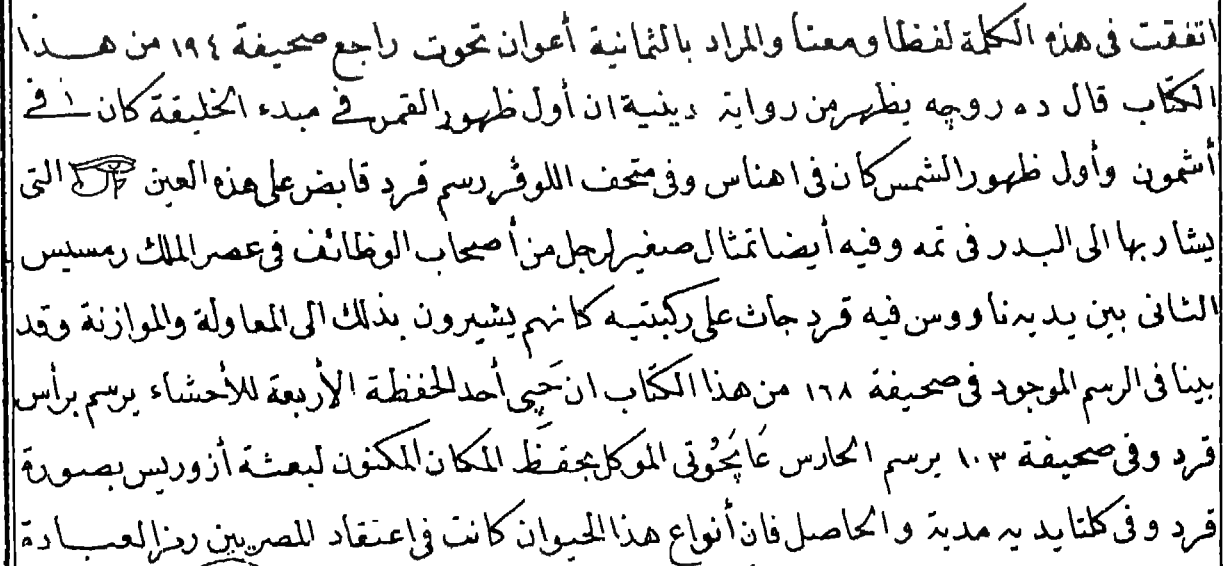 اتفقت فى هذه الكلمة لفظا ومعنا والمراد بالثمانية أعوان تحوت راجع صحيفة ١٩٤ من هــذا
الكتاب قال ده روجه يظهر من رواية دينية ان أول ظهور القمر فى مبدء الخليقة كان فى
أشمون وأول ظهور الشمس كان فى اهناس وفى متحف اللوڤر رسم قرد قابض على هذه العين 𓂀 التى
يشار بها الى البدر فى تمه وفيه أيضا تمثال صغير لرجل من أصحاب الوظائف فى عصر الملك رمسيس
الثانى بين يديه ناووس فيه قرد جاث على ركبتيه كانهم يشيرون بذلك الى المعاولة والموازنة وقد
بينا فى الرسم الموجود فى صحيفة ١٦٨ من هذا الكتاب ان حَپِى أحد الحفظة الأربعة للأحشاء يرسم برأس
قرد وفى صحيفة ١٠٣ يرسم الحارس الموكل بحفظ المكان المكنون لبعثة أزوريس بصورة
قرد وفى كلتا يديه مدية والحاصل فان أنواع هذا الحيوان كانت فى اعتقاد المصريين رمز العبــادة